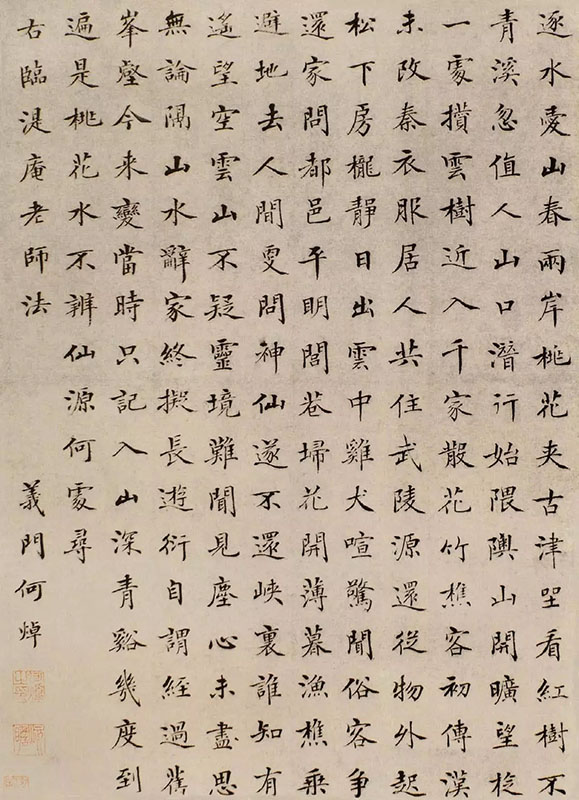 逐水愛山春兩岸桃花夾古津坐看紅樹不
青溪忽值人山口潛行始隈隩山開曠望旋
一處攢雲樹近入千家散花竹樵客初傳漢
未改秦衣服居人共住武陵源還從物外起
松下房櫳靜日出雲中雞犬喧驚聞俗客爭
還家問都邑平明閭巷埽花開薄暮漁樵乘
避地去人間更問神仙遂不還峽裏誰知有
遙望空雲山不疑靈境難聞見塵心未盡思
無論隔山水辭家終擬長遊衍自謂經過舊
峯壑今来變當時只記入山深青谿幾度到
遍是桃花水不辨仙源何處尋
右臨湜庵老師法
義門何焯